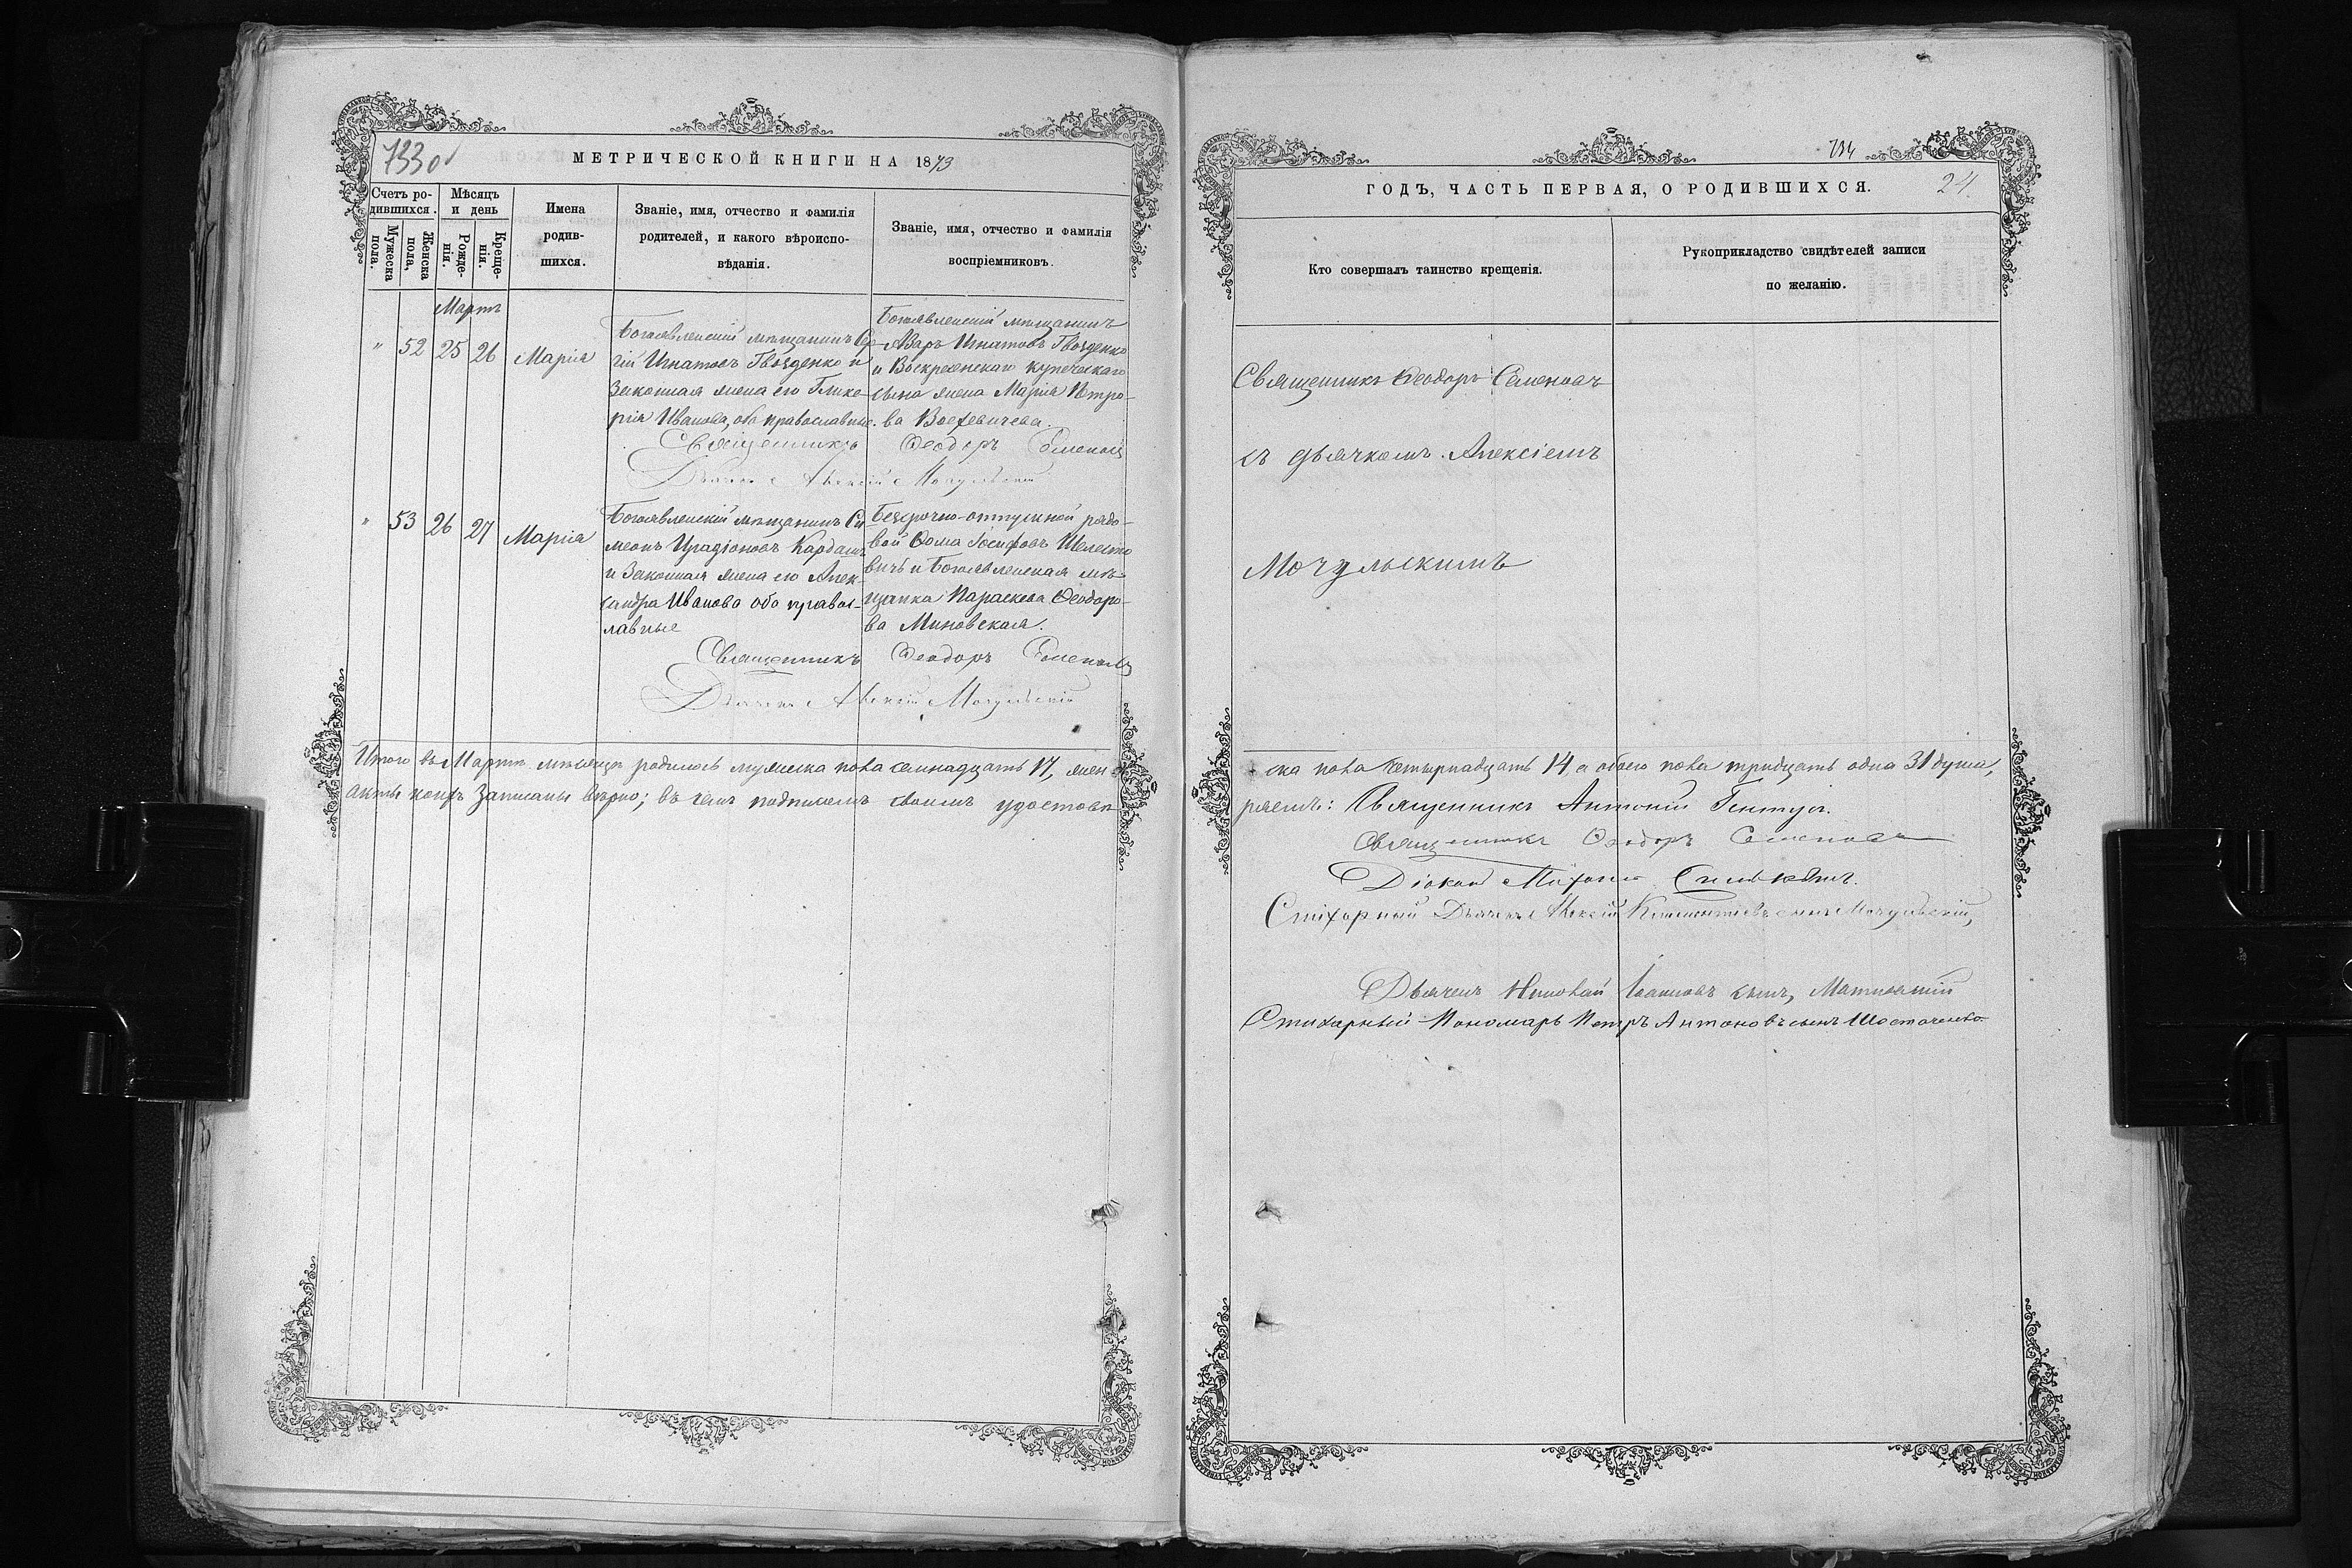 733 об
МЕТРИЧЕСКОЙ КНИГИ НА 1873
Счетъ ро-
дившихся.
Мужеска
пола.
Женска
пола,
Мѣсяцъ
и день
Рожде-
нія.
Креще-
нія.
Имена
родив-
шихся.
Званіе, имя, отчество и фамилія
родителей, и какого вѣроиспо-
вѣданія.
Званіе, имя, отчество и фамилія
воспріемниковъ.
Мартъ
" 52 25 26 Марія
Богоявленскій мѣщанинъ Сер-
гій Игнатовъ Гвозденко и
законная жена его Глике-
рія Иванова, оба православные.
Богоявленскій мѣщанинъ
Азаръ Игнатовъ Гвозденко
и Воскресенскаго купеческаго
сына жена Марія Петро-
ва
Священникъ Ѳеодоръ Семеновъ
Дьячекъ Алексій Мочульскій
" 53 26 27 Марія
Богоявленскій мѣщанинъ Си-
меонъ Иродіоновъ Кардашъ
и законная жена его Алек-
сандра Иванова оба правос-
лавные
Безсрочно-отпускной рядо-
вой Ѳома Іосифовъ Шелесто
вичъ и Богоявленская мѣ-
щанка Параскева Ѳеодоро-
ва Миновская.
Священникъ Ѳеодоръ Семеновъ
Дьячекъ Алексій Мочульскій
Итого въ Мартѣ мѣсяцѣ родилось мужеска пола семнадцать 17, жен
акты коихъ записаны вѣрно; въ чемъ подписомъ своимъ удостовѣ
734
ГОДЪ, ЧАСТЬ ПЕРВАЯ, О РОДИВШИХСЯ.
24.
Кто совершалъ таинство крещенія.
Рукоприкладство свидѣтелей записи
по желанію.
Священникъ Ѳеодоръ Семеновъ
съ дьячкомъ Алексіемъ
Мочульскимъ
ска пола четырнадцать 14 а обоего пола тридцать одна 31 душа,
ряемъ: Священникъ Антоній Гентуя.
Священникъ Ѳеодоръ Семеновъ
Діаконъ
Стихарный Дьячекъ Алексій Климентіевъ сынъ Мочульскій,
Дьячекъ Николай Іоанновъ сынъ,
Стихарный Пономарь Петръ Антоновъ сынъ